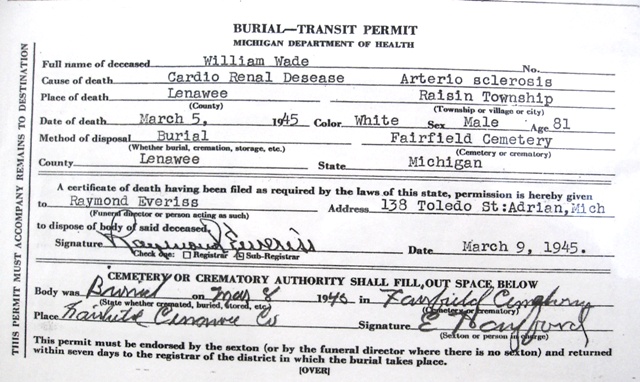 BURIAL—TRANSIT PERMIT
MICHIGAN DEPARTMENT OF HEALTH
THIS PERMIT MUST ACCOMPANY REMAINS TO DESTINATION
Full name of deceased William Wade No.
Cause of death Cardio Renal Desease Arterio sclerosis
Place of death Lenawee Raisin Township
(County) (Township or village or city)
Date of death March 5, 1945 Color White Sex Male Age 81
Method of disposal Burial Fairfield Cemetery
(Whether burial, cremation, storage, etc.) (Cemetery or crematory)
County Lenawee State Michigan
A certificate of death having been filed as required by the laws of this state, permission is hereby given
to Raymond Everiss Address 138 Toledo St:Adrian,Mich
(Funeral director or person acting as such)
to dispose of body of said deceased.
Signature Raymond Everiss Date March 9, 1945.
Check one: Registrar Sub-Registrar
CEMETERY OR CREMATORY AUTHORITY SHALL FILL OUT SPACE BELOW
Body was Buried on Mar 8 1945 in Fairfield Cemetery
(State whether cremated, buried, stored, etc.) (Cemetery or crematory)
Place Fairfield Lenawee Co Signature E Hayford
(Sexton or person in charge)
This permit must be endorsed by the sexton (or by the funeral director where there is no sexton) and returned
within seven days to the registrar of the district in which the burial takes place.
[OVER]